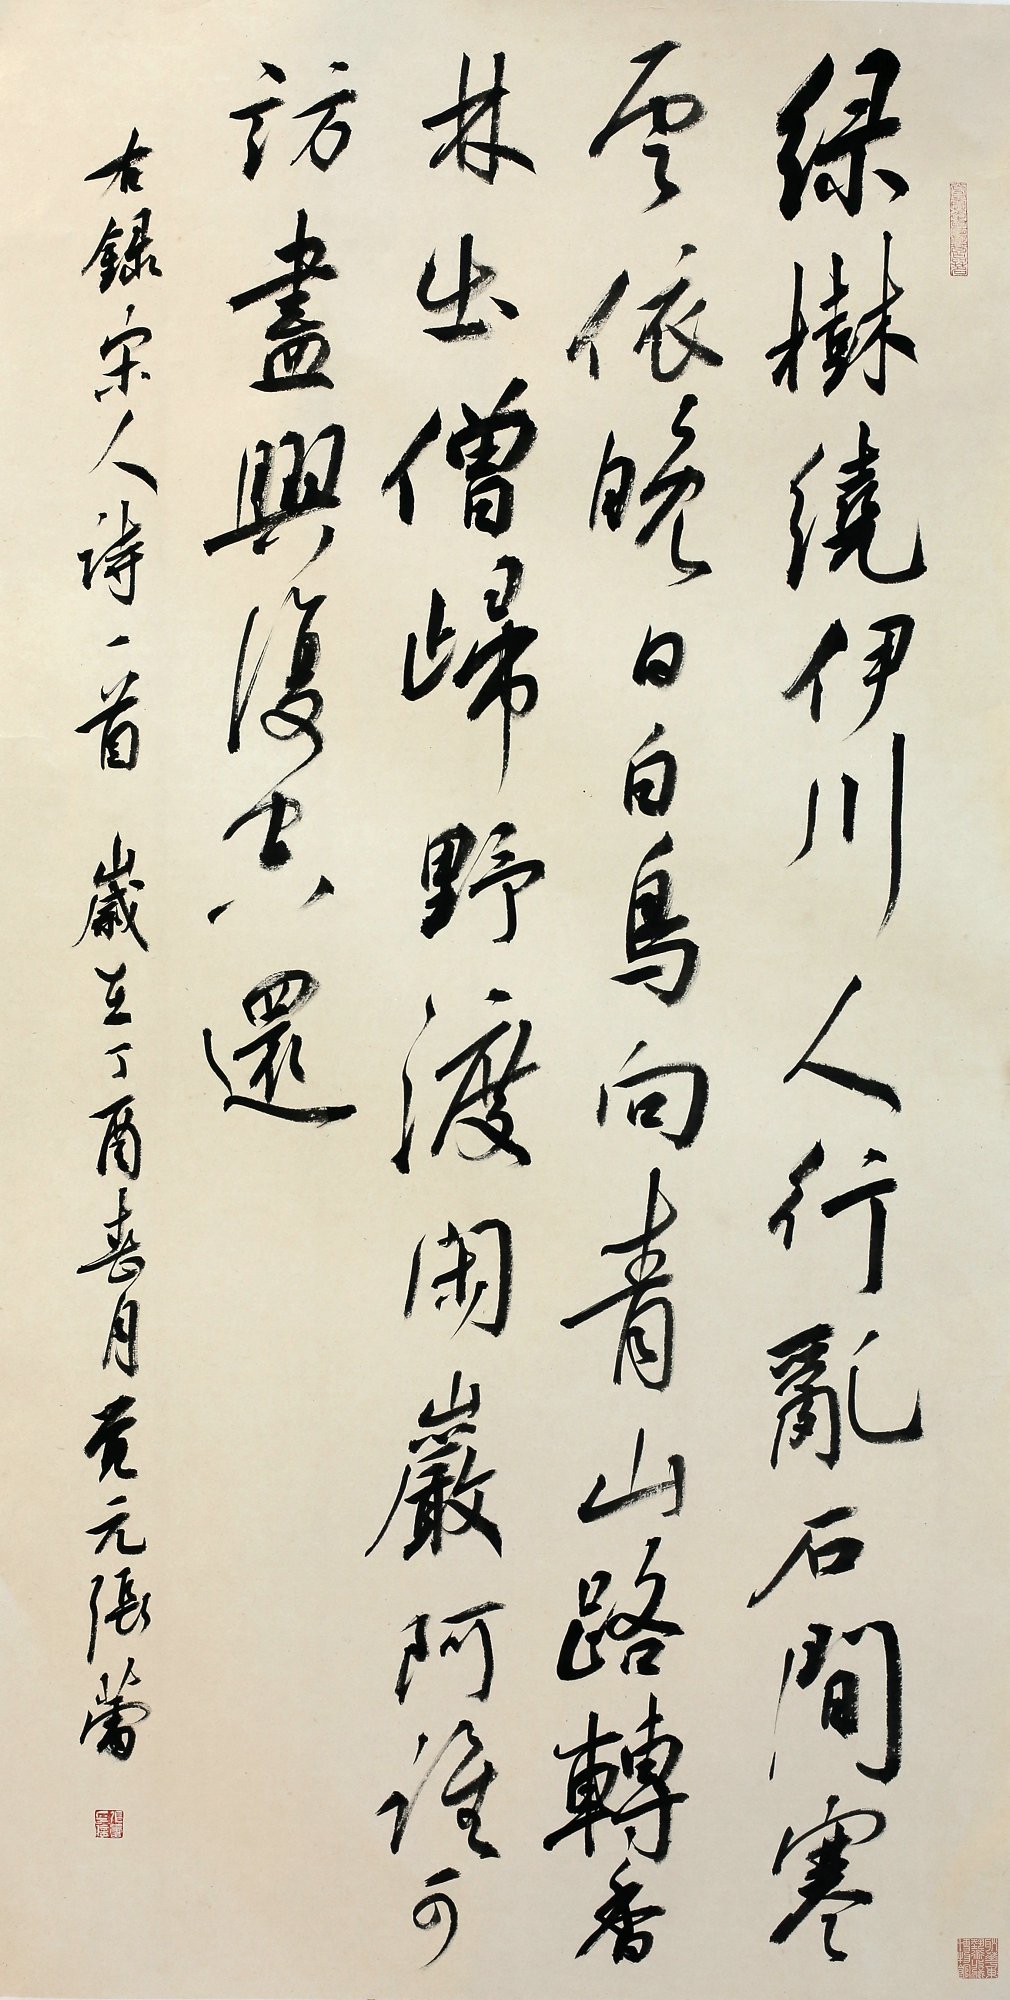 绿樹繞伊川人行亂石間寒
雲依晚日白鳥向青山路轉香
林出僧歸野渡闲巖阿誰可
訪盡興復空還
右録宋人詩一首 歲在丁酉春月党元張蕾